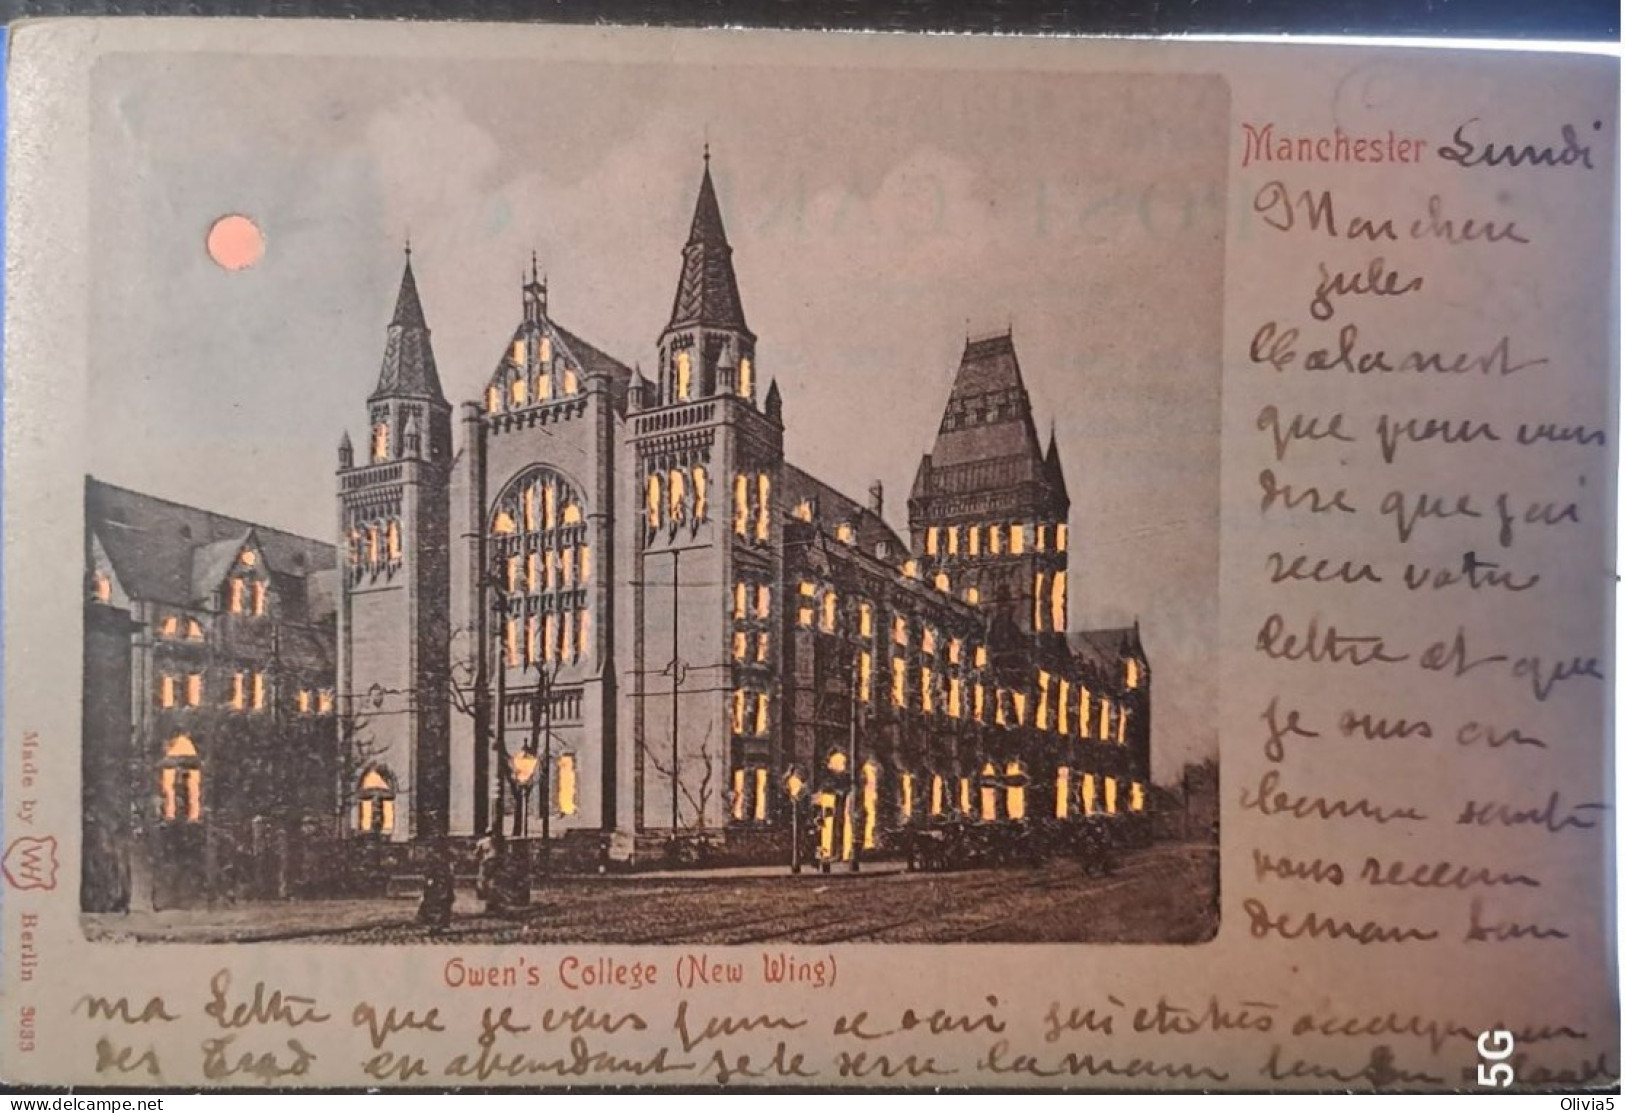 Manchester Lundi
Mon chere
jules
Cela nest
que pour vous
dire que j'ai
recu votre
lettre et que
je suis en
bonne sante
vous recevrer
deman
ma lettre que je vous
des en abondant je te serre la main
Owen's College (New Wing)
Made by W H Berlin 3033
5G
delcampe.net
Olivia5